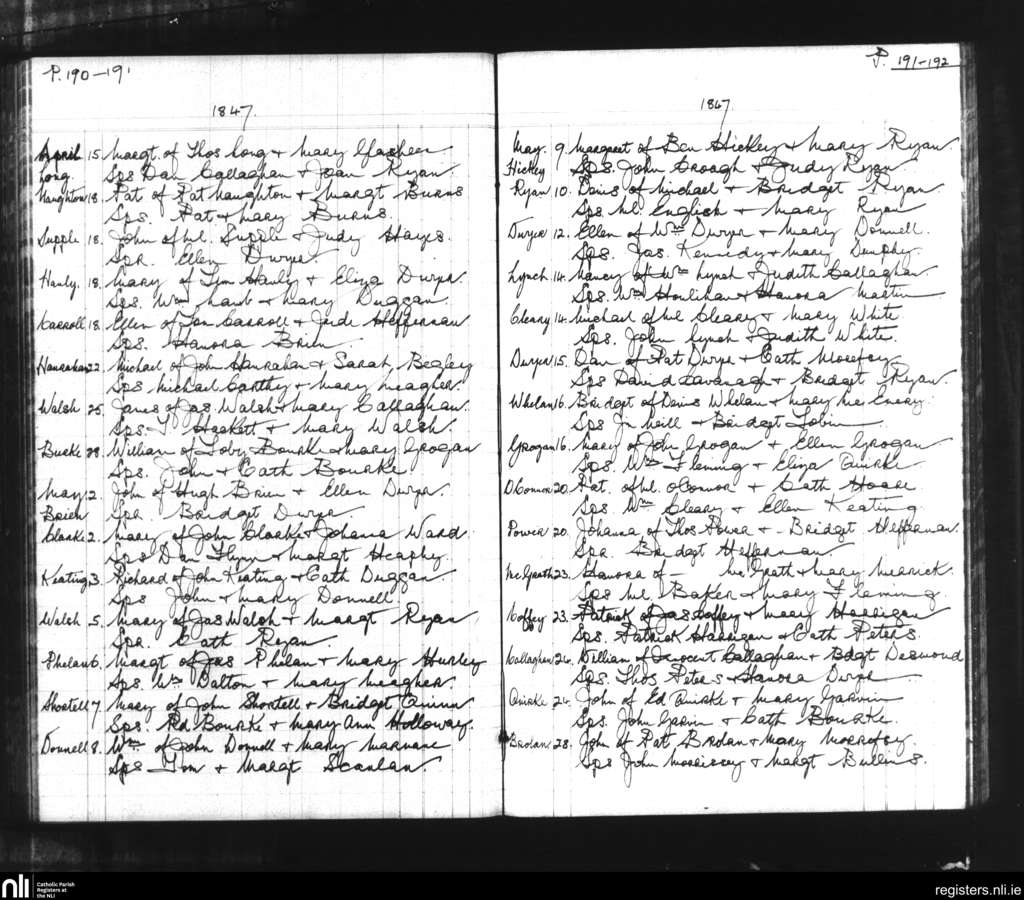 P. 190-191
1847.
April 15 Margt. of Thos Long + Mary
Long. Sps Dan Callaghan + Joan Ryan.
Naughton 18. Pat of Pat Naughton + Margt Burns
Sps. Pat + Mary Burns.
Supple 18. John of Ml. Supple + Judy Hayes.
Spr. Ellen Dwyer
Hanly. 18. Mary of Tim Hanly + Eliza Dwyer
Sps. Wm + Mary Duggan
Carroll 18. Ellen of Ton Carroll + Jude Heffernan
Sps. Hanora Brien
Hanrahan 22. Michael of John Hanrahan + Sarah Begley
Sps Michael Carthy + Mary Meagher.
Walsh 25. James of Jas. Walsh + Mary Callaghan.
Sps. T. Haskett + Mary Walsh.
Burke 28. William of Toby Bourke + Mary Grogan
Sps. John + Cath Bourke
May 2. John of Hugh Brien + Ellen Dwyer.
Brien Spr. Bridget Dwyer
Cloake 2. Mary of John Cloake + Johana Ward.
Sps Dan Flynn + Margt Heaphy.
Keating 3. Richard of John Keating + Cath Duggan
Sps John + Mary Donnell.
Walsh 5. Mary of Jas Walsh + Margt Ryan
Spr. Cath Ryan
Phelan 6. Margt of Jas Phelan + Mary Hurley
Sps. Wm Dalton + Mary Meagher.
Shortell 7. Mary of John Shortell + Bridget Quinn
Sps. Rd Bourke + Mary Ann Holloway.
Donnell 8. Wm of John Donnell + Mary Marnane
Sps Tom + Margt Scanlan.
P. 191-192
1847.
May. 9. Margaret of Ben Hickey + Mary Ryan.
Hickey Sps. John Croagh + Judy Ryan
Ryan 10. Denis of Michael + Bridget Ryan
Sps. Ml. English + Mary Ryan
Dwyer 12. Ellen of Wm Dwyer + Mary Donnell.
Sps. Jas. Kennedy + Mary Dunphy.
Lynch 14. Nancy of Wm Lynch + Judith Callaghan
Sps. Wm Houlihan + Hanora Martin
Cleary 14. Michael of Ml Cleary + Mary White
Sps. John Lynch + Judith White.
Dwyer 15. Dan of Pat Dwyer + Cath
Sps David Cavanagh + Bridget Ryan.
Whelan 16. Bridget of Denis Whelan + Mary Mc Enery.
Sps Jn Neill + Bridgt Tobin
Grogan 16. Mary of John Grogan + Ellen Grogan
Sps. Wm Fleming + Eliza Quirke
O Connor 20. Pat. of Ml. O'Connor + Cath Hoare
Sps Wm Cleary + Ellen Keating
Power 20. Johanna of Thos Power + - Bridget Heffernan.
Spr. Bridgt Heffernan
Mc Grath 23. Hanora of - Mc Grath + Mary Merrick.
Sps Ml Baker + Mary Fleming
Coffey 23. Patrick of Jas Coffey + Mary Harrigan
Sps. Patrick Harrigan + Cath Peters
Callaghan 24. William of Inocent Callaghan + Bdgt Desmond
Sps. Thos Peters + Hanora Dwyer
Quirke 24. John of Ed Quirke + Mary Garvin
Sps. John Garvin + Cath Bourke.
Brolan 28. John of Pat Brolan + Mary
Sps John Morrissey + Margt Bullins.
nli
Catholic Parish
Registers at
the NLI
registers.nli.ie